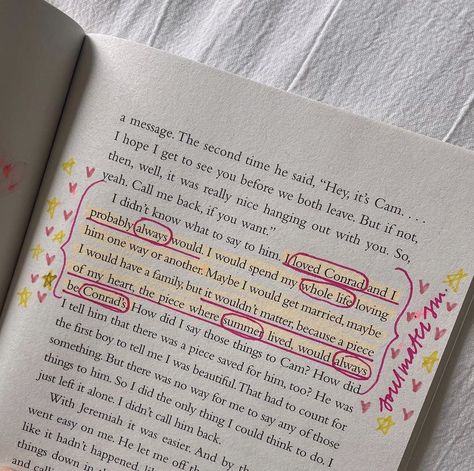 a message. The second time he said, "Hey, it's Cam. . . .
I hope I get to see you before we both leave. But if not,
then, well, it was really nice hanging out with you. So,
yeah. Call me back, if you want."
I didn't know what to say to him. I loved Conrad and I
probably always would. I would spend my whole life loving
him one way or another. Maybe I would get married, maybe
I would have a family, but it wouldn't matter, because a piece
of my heart, the piece where summer lived, would always
be Conrad's. How did I say those things to Cam? How did
I tell him that there was a piece saved for him, too? He was
the first boy to tell me I was beautiful. That had to count for
something. But there was no way for me to say any of those
things to him. So I did the only thing I could think to do. I
just left it alone. I didn't call him back.
With Jeremiah it was easier. And by th
went easy on me. He let me off th
like it hadn't happened, li
things down in th
and cal